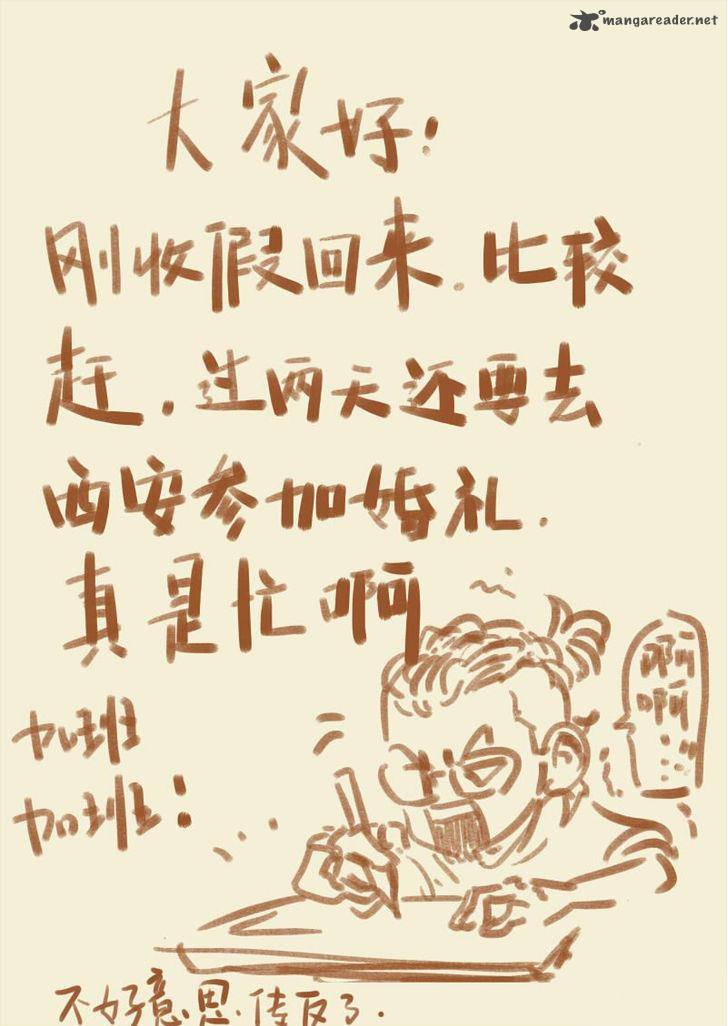 mangareader.net
大家好:
刚收假回来.比较
赶.过两天还要去
西安参加婚礼.
真是忙啊
啊
啊
...
加班
加班:
不好意思.传反了.